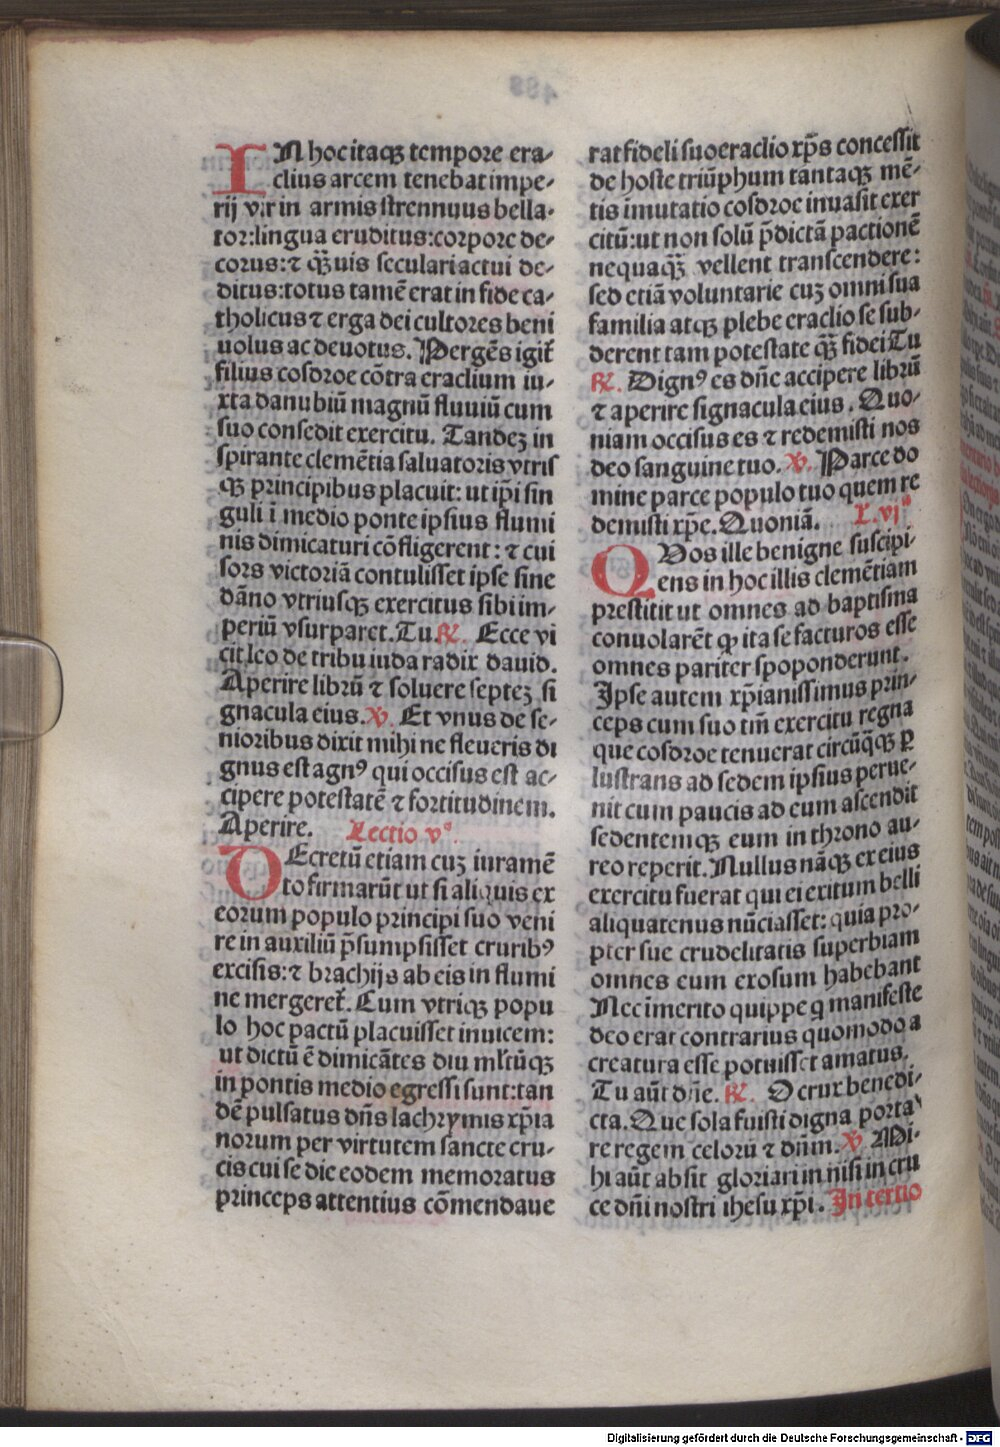 IN hoc itaqꝫ tempore era⸗
clius arcem tenebat impe⸗
rij vir in armis strennuus bella⸗
tor:lingua eruditus:corpore de⸗
corus:⁊ qꝫuis seculari actui de⸗
ditus:totus tamē erat in fide ca⸗
tholicus ⁊ erga dei cultores beni
uolus ac deuotus. Pergēs igit̄
filius cosdroe cōtra eraclium iu⸗
xta danubiū magnū fluuiū cum
suo consedit exercitu. Tandeꝫ in
spirante clemētia saluatoris vtris
qꝫ principibus placuit: ut ip̄i sin
guli ī medio ponte ipsius flumi
nis dimicaturi cōfligerent: ⁊ cui
sors victoriā contulisset ipse sine
dāno vtriusqꝫ exercitus sibi im⸗
periū vsurparet. Tu ℟. Ecce vi
cit leo de tribu iuda radix dauid.
Aperire librū ⁊ soluere septeꝫ si
gnacula eius. ℣. Et vnus de se⸗
nioribus dixit mihi ne fleueris di
gnus est agnꝰ qui occisus est ac⸗
cipere potestatē ⁊ fortitudinem.
Aperire. Lectio vᵃ
DEcretū etiam cuꝫ iuramē
to firmarūt ut si aliquis ex
eorum populo principi suo veni
re in auxiliū p̄sumpsisset cruribꝰ
excisis:⁊ brachijs ab eis in flumi
ne mergeret̄. Cum vtriqꝫ popu
lo hoc pactū placuisset inuicem:
ut dictū ē dimicātes diu ml̄tūqꝫ
in pontis medio egressi sunt:tan
dē pulsatus dn̄s lachrymis xp̄ia
norum per virtutem sancte cru⸗
cis cui se die eodem memoratus
princeps attentius cōmendaue
rat fideli suo eraclio xp̄s concessit
de hoste triūphum tantaqꝫ mē⸗
tis īmutatio cosdroe inuasit exer
citū:ut non solū p̄dictā pactionē
nequaqꝫ̄ vellent transcendere:
sed etiā voluntarie cuꝫ omni sua
familia atqꝫ plebe eraclio se sub⸗
derent tam potestate qꝫ̄ fidei Tu
℟. Dignꝰ es dn̄e accipere librū
⁊ aperire signacula eius. Quo⸗
niam occisus es ⁊ redemisti nos
deo sanguine tuo. ℣. Parce do
mine parce populo tuo quem re
demisti xp̄e. Quoniā. L. vjᵃ
QVos ille benigne suscipi⸗
ens in hoc illis clemētiam
prestitit ut omnes ad baptisma
conuolarēt ꝙ ita se facturos esse
omnes pariter spoponderunt.
Ipse autem xp̄ianissimus prin⸗
ceps cum suo tm̄ exercitu regna
que cosdroe tenuerat circūqꝫqꝫ ꝑ
lustrans ad sedem ipsius perue⸗
nit cum paucis ad eum ascendit
sedentemqꝫ eum in throno au⸗
reo reperit. Nullus nāqꝫ ex eius
exercitu fuerat qui ei exitum belli
aliquatenus nūciasset: quia pro⸗
pter sue crudelitatis superbiam
omnes eum exosum habebant
Nec īmerito quippe q manifeste
deo erat contrarius quomodo a
creatura esse potuisset amatus.
Tu aūt dn̄e. ℟. O crux benedi⸗
cta. Que sola fuisti digna porta
re regem celorū ⁊ dn̄m. ℣. Mi⸗
hi aūt absit gloriari in nisi in cru
ce dn̄i nostri ihesu xp̄i. In tertio
Digitalisierung gefördert durch die Deutsche Forschungsgemeinschaft - DFG